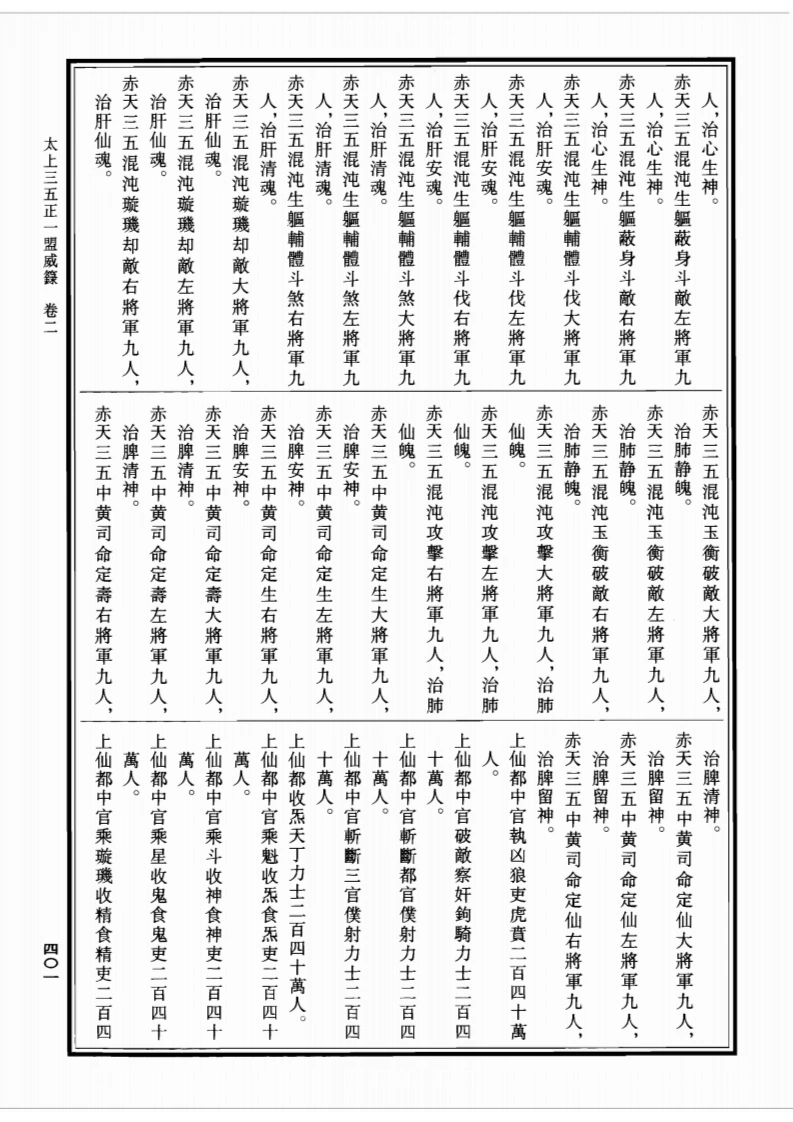 人，治心生神。
赤天三五混沌生軀蔽身斗敵左將軍九
人，治心生神。
赤天三五混沌生軀蔽身斗敵右將軍九
人，治心生神。
赤天三五混沌生軀輔體斗伐大將軍九
人，治肝安魂。
赤天三五混沌生軀輔體斗伐左將軍九
人，治肝安魂。
赤天三五混沌生軀輔體斗伐右將軍九
人，治肝安魂。
赤天三五混沌生軀輔體斗煞大將軍九
人，治肝清魂。
赤天三五混沌生軀輔體斗煞左將軍九
人，治肝清魂。
赤天三五混沌生軀輔體斗煞右將軍九
人，治肝清魂。
赤天三五混沌璇璣却敵大將軍九人，
治肝仙魂。
赤天三五混沌璇璣却敵左將軍九人，
治肝仙魂。
赤天三五混沌璇璣却敵右將軍九人，
治肝仙魂。
赤天三五混沌玉衡破敵大將軍九人，
治肺静魄。
赤天三五混沌玉衡破敵左將軍九人，
治肺静魄。
赤天三五混沌玉衡破敵右將軍九人，
治肺静魄。
赤天三五混沌攻擊大將軍九人，治肺
仙魄。
赤天三五混沌攻擊左將軍九人，治肺
仙魄。
赤天三五混沌攻擊右將軍九人，治肺
仙魄。
赤天三五中黄司命定生大將軍九人，
治脾安神。
赤天三五中黄司命定生左將軍九人，
治脾安神。
赤天三五中黄司命定生右將軍九人，
治脾安神。
赤天三五中黄司命定壽大將軍九人，
治脾清神。
赤天三五中黄司命定壽左將軍九人，
治脾清神。
赤天三五中黄司命定壽右將軍九人，
治脾清神。
赤天三五中黄司命定仙大將軍九人，
治脾留神。
赤天三五中黄司命定仙左將軍九人，
治脾留神。
赤天三五中黄司命定仙右將軍九人，
治脾留神。
上仙都中官執凶狼吏虎賁二百四十萬
人。
上仙都中官破敵察奸鉤騎力士二百四
十萬人。
上仙都中官斬斷都官僕射力士二百四
十萬人。
上仙都中官斬斷三官僕射力士二百四
十萬人。
上仙都收炁天丁力士二百四十萬人。
上仙都中官乘魁收炁食炁吏二百四十
萬人。
上仙都中官乘斗收神食神吏二百四十
萬人。
上仙都中官乘星收鬼食鬼吏二百四十
萬人。
上仙都中官乘璇璣收精食精吏二百四
太上三五正一盟威籙 卷二
四〇一